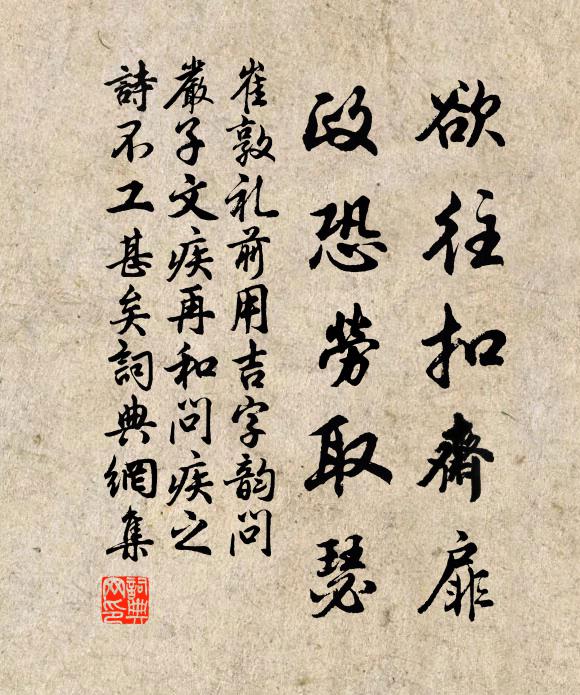 欲往扣齋扉
政恐勞取瑟
崔敦礼前用吉字韵問
嚴子文疾再和問疾之
詩不工甚矣詞典網集
詞典網印